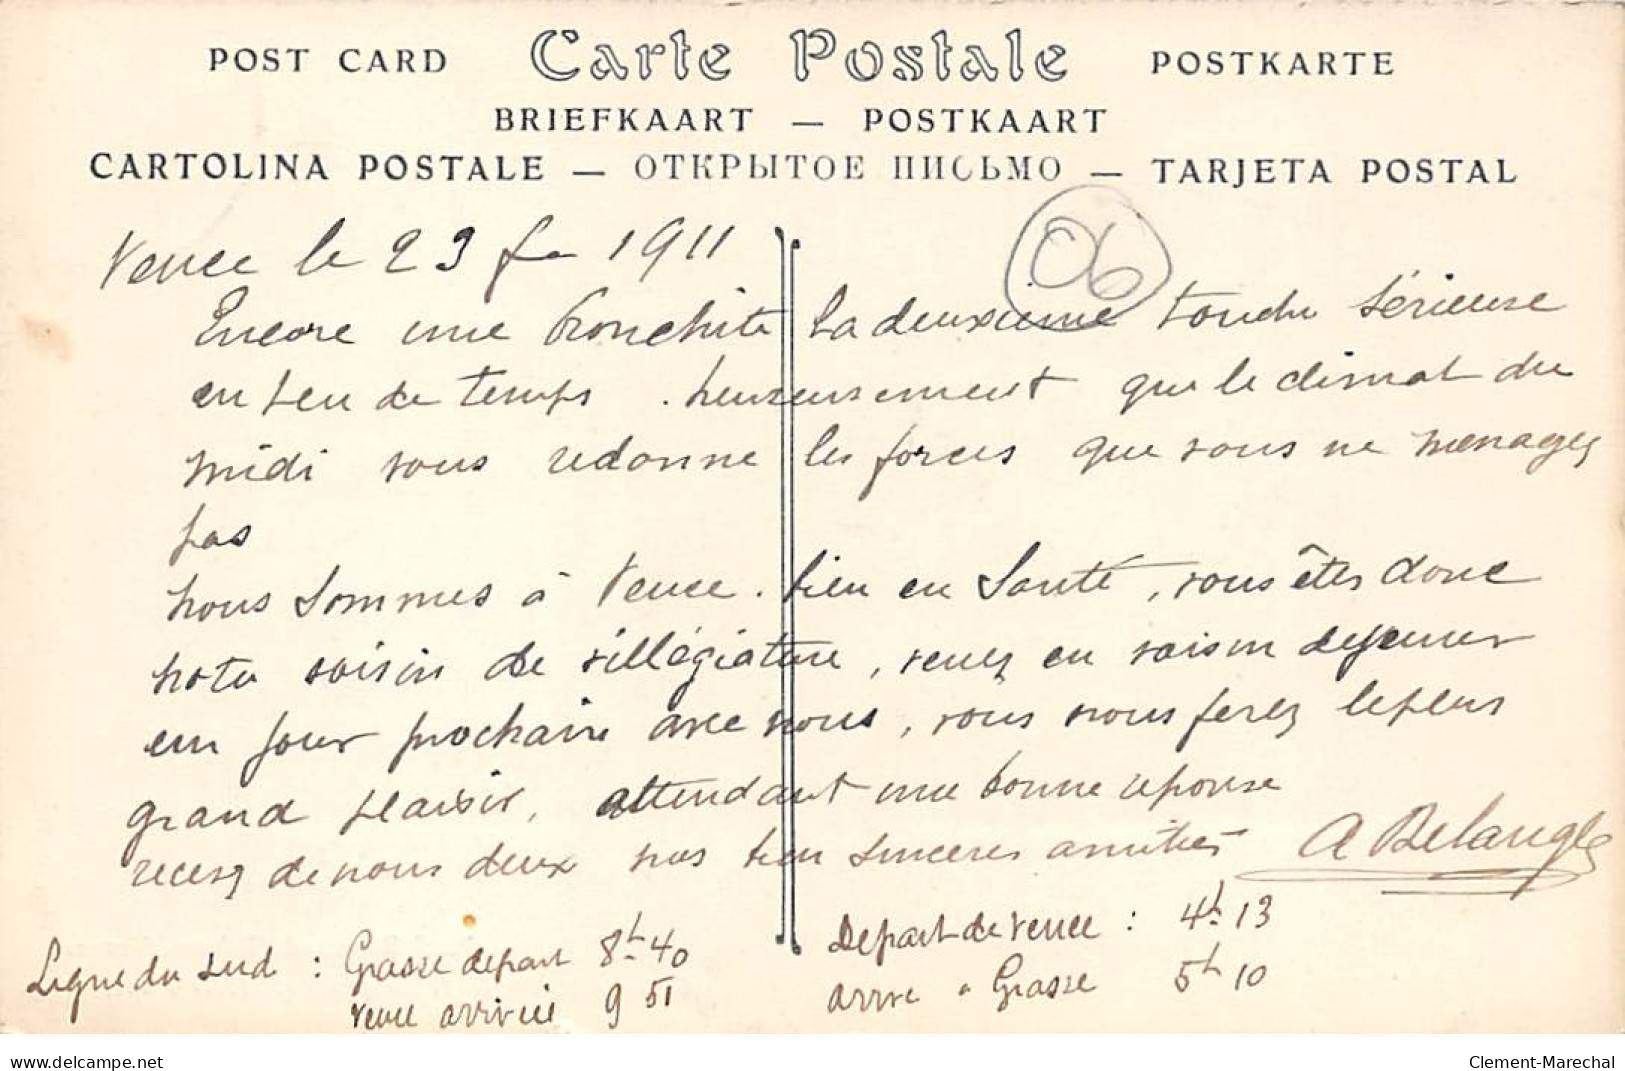 POST CARD Carte Postale POSTKARTE
BRIEFKAART — POSTKAART
CARTOLINA POSTALE — ОТКРЫТОЕ ПИСЬМО — TARJETA POSTAL
06
Vence le 23 1911
Encore une bronchite la deuxieme touche sérieuse
en peu de temps. heureusement que le climat du
midi vous redonne les forces que vous ne menagez
pas
nous sommes à Vence. bien en Santé, vous êtes donc
notre voisin de villégiature, venez en voisin dejeuner
un jour prochain avec nous, vous nous ferez le plus
grand plaisir, attendant une bonne reponse
recevez de nous deux nos bien sinceres amitiés A Belanger
Ligne du sud : Grasse depart 8h 40
Vence arrivée 9 51
Depart de Vence : 4h 13
arrive a Grasse 5h 10
www.delcampe.net
Clement-Marechal